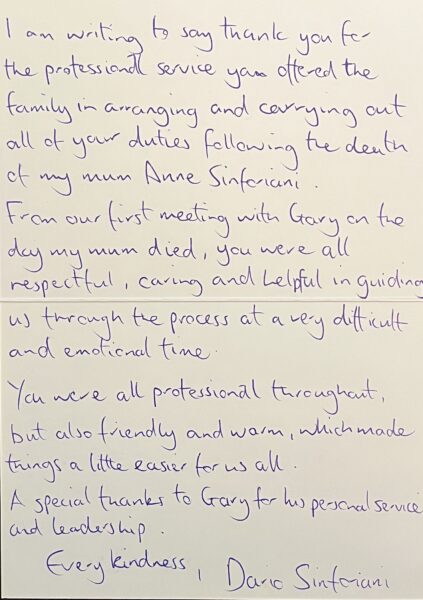 I am writing to say thank you for
the professional service you offered the
family in arranging and carrying out
all of your duties following the death
of my mum Anne Sinforiani.
From our first meeting with Gary on the
day my mum died, you were all
respectful, caring and helpful in guiding
us through the process at a very difficult
and emotional time.
You were all professional throughout,
but also friendly and warm, which made
things a little easier for us all.
A special thanks to Gary for his personal service
and leadership.
Every kindness, Dario Sinforiani